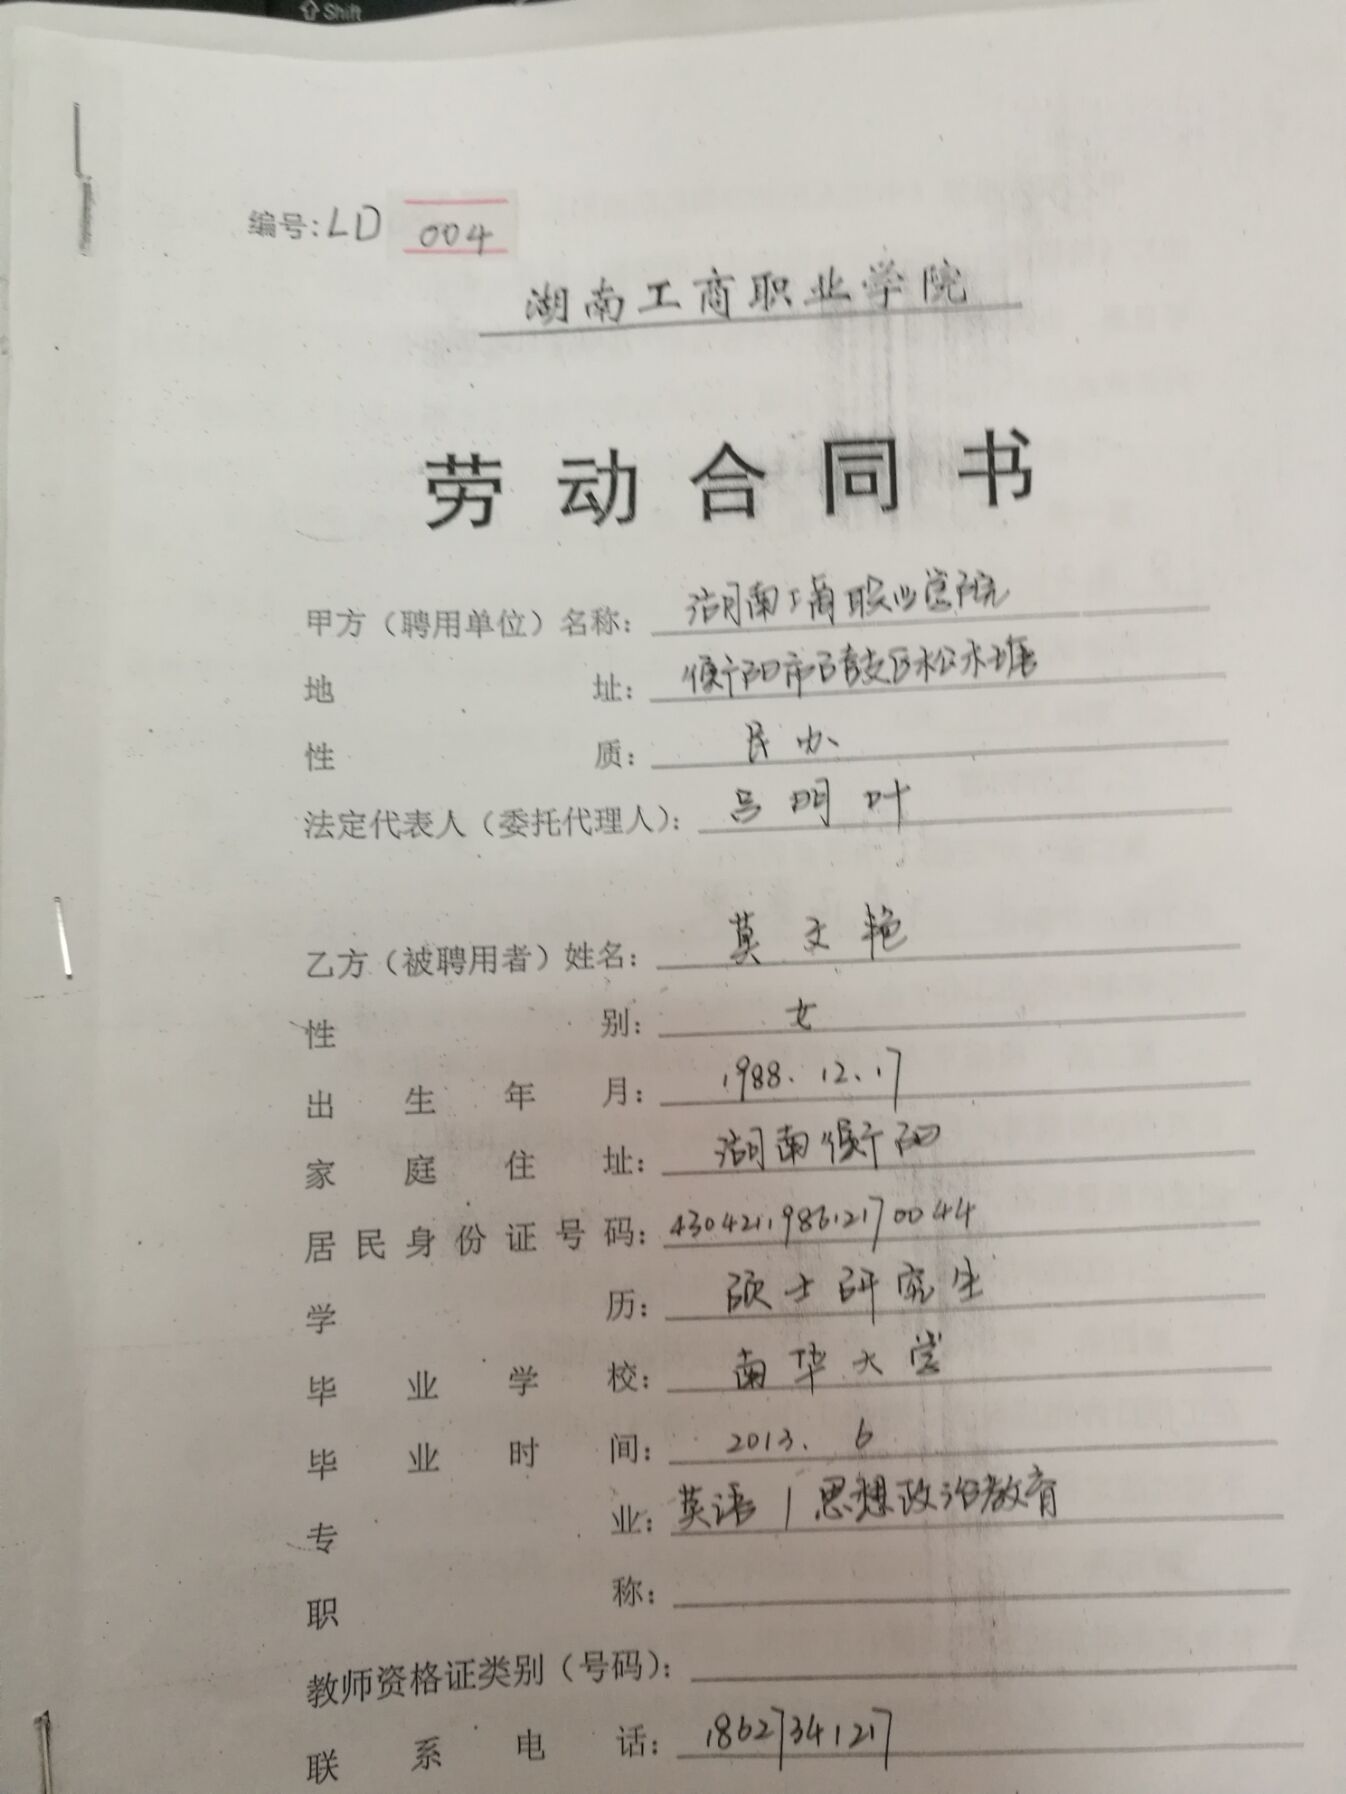 Shift
编号:LD 004
湖南工商职业学院
劳动合同书
甲方（聘用单位）名称：湖南工商职业学院
地址：衡阳市石鼓区松木塘
性质：民办
法定代表人（委托代理人）：吕明叶
乙方（被聘用者）姓名：莫文艳
性别：女
出生年月：1988.12.17
家庭住址：湖南衡阳
居民身份证号码：430421198612170044
学历：硕士研究生
毕业学校：南华大学
毕业时间：2013.6
专业：英语/思想政治教育
职称：
教师资格证类别（号码）：
联系电话：18627341217